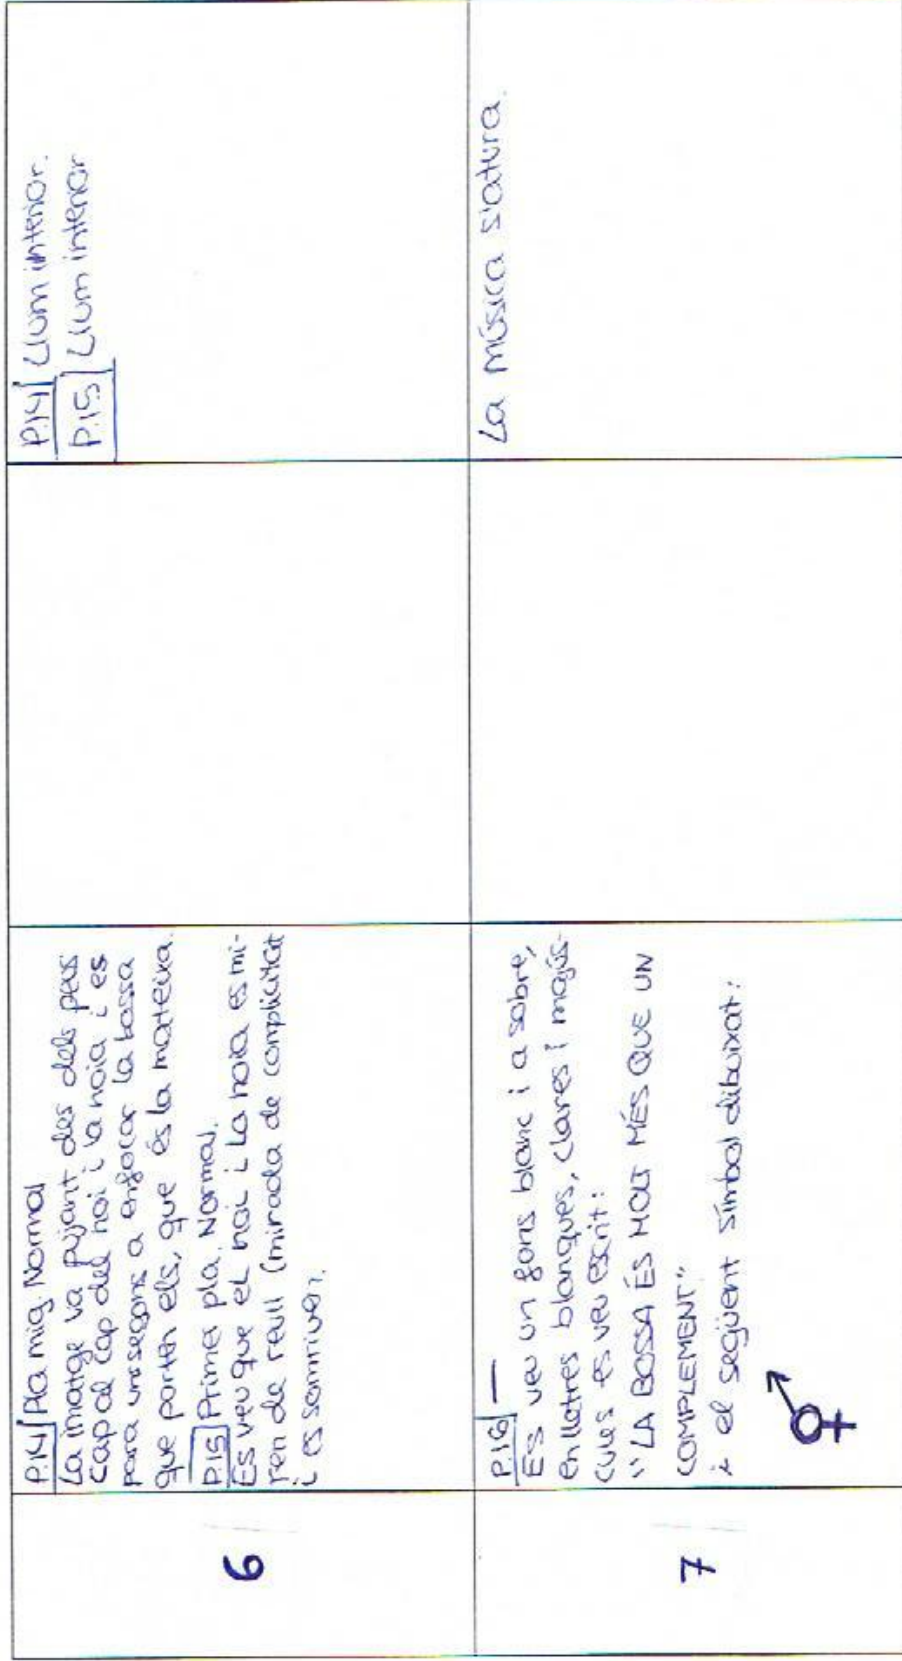 6
P.14| Pla mig. Normal
La imatge va pujant des dels peus
cap al cap del noi i la noia i es
para uns segons a enfocar la bossa
que porten els, que és la mateixa.
P.15| Primer pla. Normal.
Es veu que el noi i la noia es mi-
ren de reüll (mirada de complicitat
i es somriuen.
P.14| Llum interior.
P.15| Llum interior
7
P.16| —
Es veu un fons blanc i a sobre,
en lletres blanques, clares i majús-
cules es veu escrit:
"LA BOSSA ÉS MOLT MÉS QUE UN
COMPLEMENT"
i el següent símbol dibuixat:
La música s'atura.